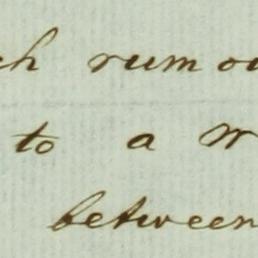 ch rumou
to a w
between